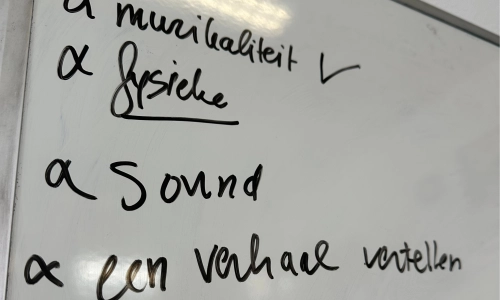 α muzikaliteit ✓
α fysieke
α Sound
α een verhaal vertellen